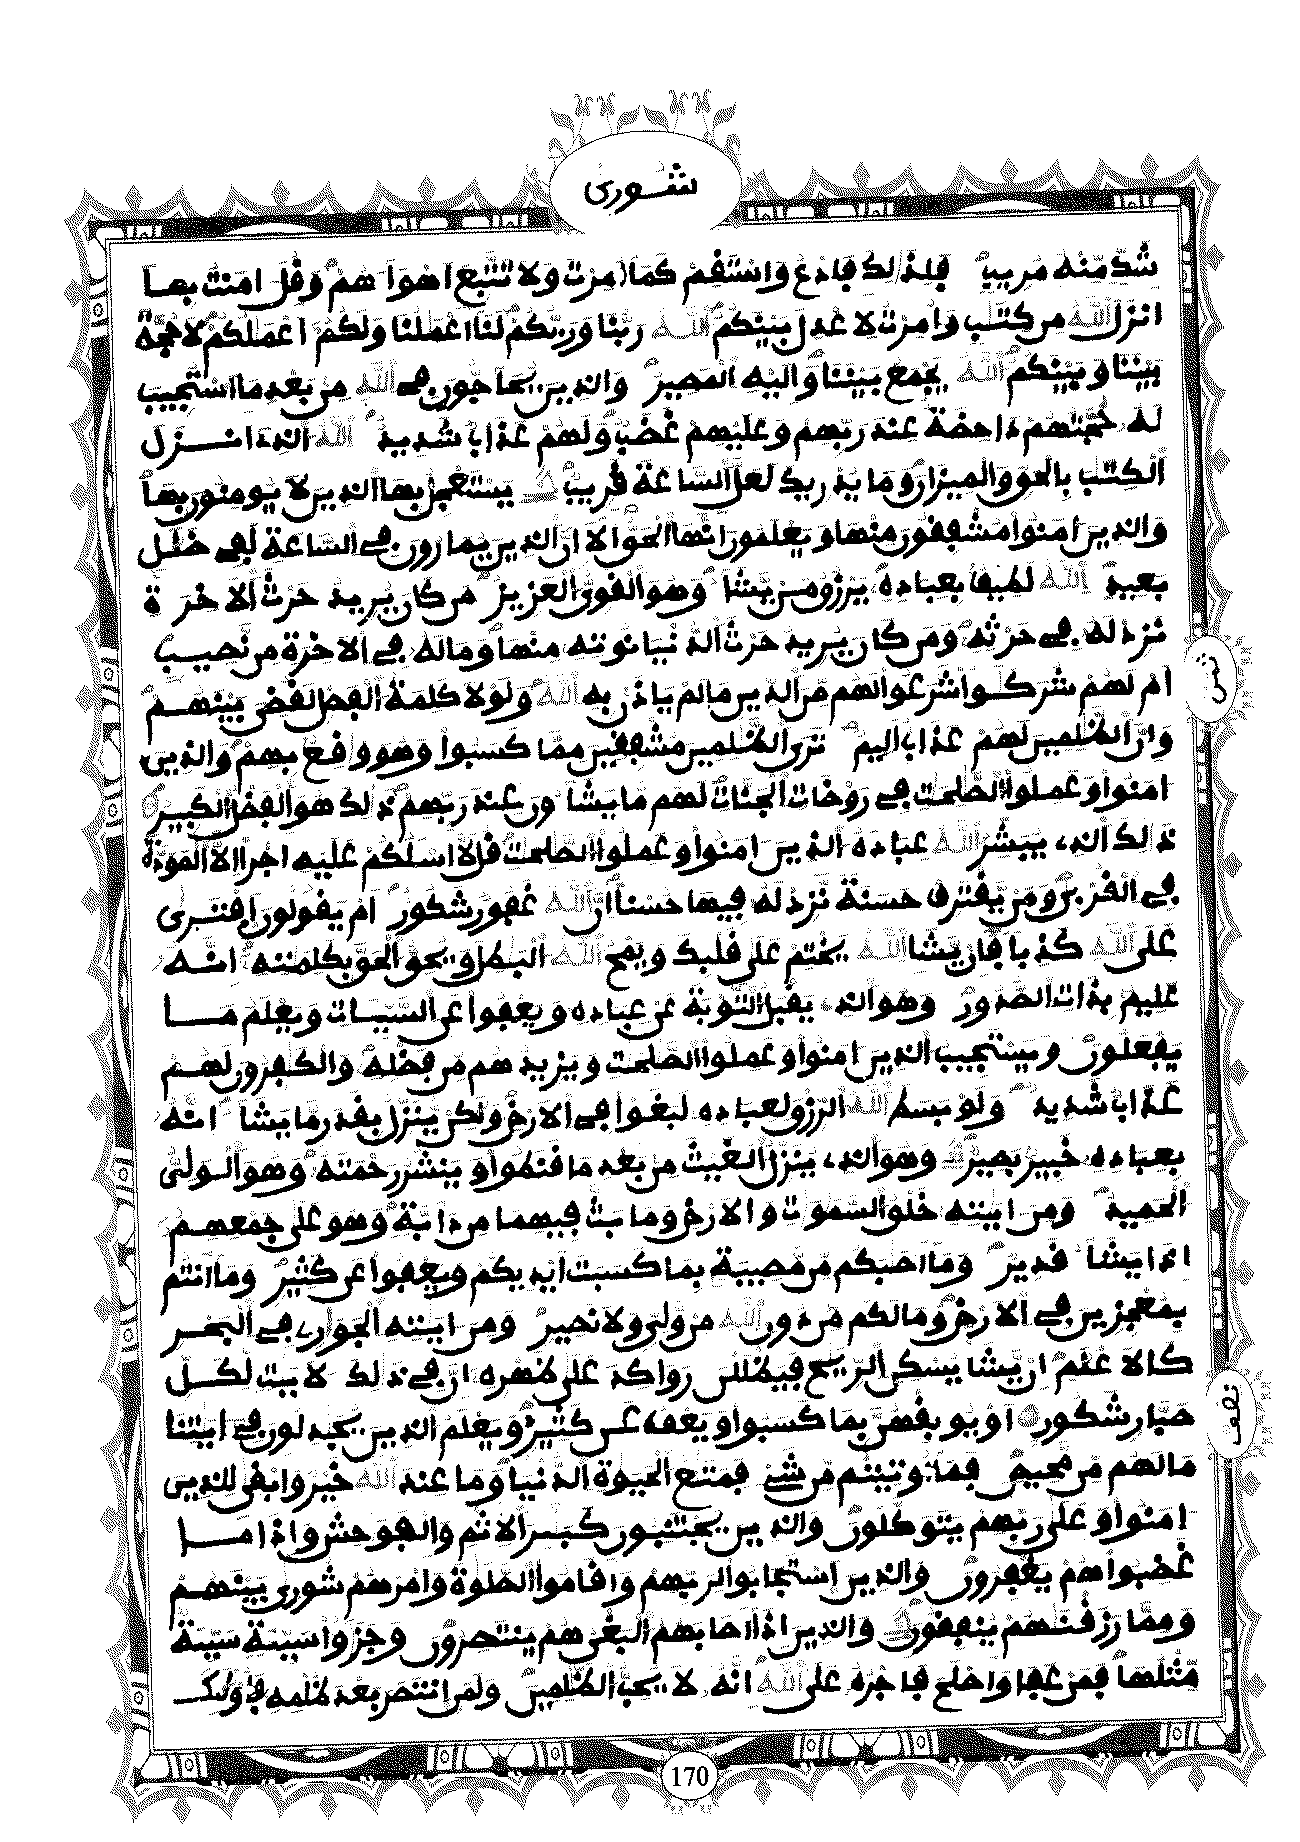 شورى
شك منه مريب فلذلك فادع واستقم كما امرت ولا تتبع اهواهم وقل امنت بما
انزل الله من كتب وامرت لاعدل بينكم الله ربنا وربكم لنا اعملنا ولكم اعملكم لا حجة
بيننا وبينكم الله يجمع بيننا واليه المصير والذين يحاجون في الله من بعد ما استجيب
له حجتهم داحضة عند ربهم وعليهم غضب ولهم عذاب شديد الله الذي انزل
الكتب بالحق والميزان وما يدريك لعل الساعة قريب يستعجل بها الذين لا يومنون بها
والذين امنوا مشفقون منها ويعلمون انها الحق الا ان الذين يمارون في الساعة لفي ضلل
بعيد الله لطيف بعباده يرزق من يشا وهو القوي العزيز من كان يريد حرث الاخرة
نزد له في حرثه ومن كان يريد حرث الدنيا نوته منها وما له في الاخرة من نصيب
ام لهم شركوا شرعوا لهم من الدين ما لم ياذن به الله ولولا كلمة الفصل لقضي بينهم
وان الظلمين لهم عذاب اليم ترى الظلمين مشفقين مما كسبوا وهو واقع بهم والذين
امنوا وعملوا الصلحت في روضات الجنات لهم ما يشاون عند ربهم ذلك هو الفضل الكبير
ذلك الذي يبشر الله عباده الذين امنوا وعملوا الصلحت قل لا اسلكم عليه اجرا الا المودة
في القربى ومن يقترف حسنة نزد له فيها حسنا ان الله غفور شكور ام يقولون افترى
على الله كذبا فان يشا الله يختم على قلبك ويمح الله البطل ويحق الحق بكلمته انه
عليم بذات الصدور وهو الذي يقبل التوبة عن عباده ويعفوا عن السيات ويعلم ما
يفعلون ويستجيب الذين امنوا وعملوا الصلحت ويزيدهم من فضله والكفرون لهم
عذاب شديد ولو بسط الله الرزق لعباده لبغوا في الارض ولكن ينزل بقدر ما يشا انه
بعباده خبير بصير وهو الذي ينزل الغيث من بعد ما قنطوا وينشر رحمته وهو الولي
الحميد ومن ايته خلق السموت والارض وما بث فيهما من دابة وهو على جمعهم
اذا يشا قدير وما اصبكم من مصيبة بما كسبت ايديكم ويعفوا عن كثير وما انتم
بمعجزين في الارض وما لكم من دون الله من ولي ولا نصير ومن ايته الجوار في البحر
كالاعلم ان يشا يسكن الريح فيظللن رواكد على ظهره ان في ذلك لايت لكل
صبار شكور او يوبقهن بما كسبوا ويعف عن كثير ويعلم الذين يجدلون في ايتنا
ما لهم من محيص فما اوتيتم من شي فمتع الحيوة الدنيا وما عند الله خير وابقى للذين
امنوا وعلى ربهم يتوكلون والذين يجتنبون كبير الاثم والفوحش واذا ما
غضبوا هم يغفرون والذين استجابوا لربهم واقاموا الصلوة وامرهم شورى بينهم
ومما رزقنهم ينفقون والذين اذا اصابهم البغي هم ينتصرون وجزوا سيية سيية
مثلها فمن عفا واصلح فاجره على الله انه لا يحب الظلمين ولمن انتصر بعد ظلمه فاوليك
ثمن
نصف
170